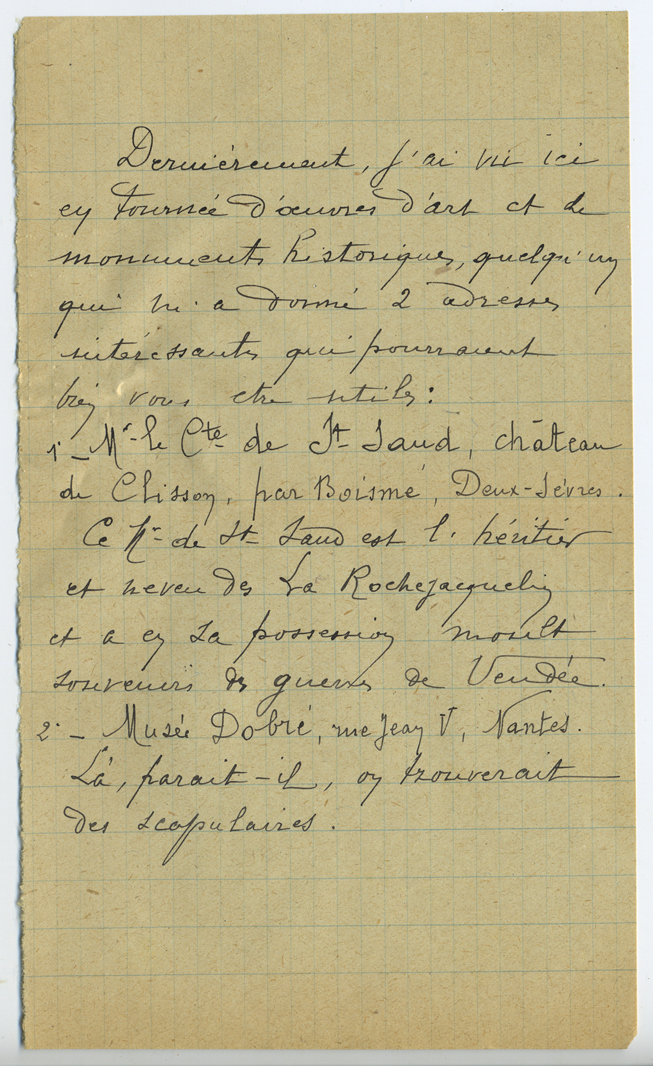 Dernièrement, j'ai vu ici
en tournée d'œuvres d'art et de
monuments historiques, quelqu'un
qui m'a donné 2 adresses
intéressantes qui pourraient
bien vous être utiles :
1° - Mr le Cte de St Saud, château
de Clisson, par Boismé, Deux-Sèvres.
Ce Mr de St Saud est l'héritier
et neveu des La Rochejacquelin
et a en sa possession moult
souvenirs des guerres de Vendée.
2° - Musée Dobré, rue Jean V, Nantes.
Là, parait-il, on trouverait
des scapulaires.